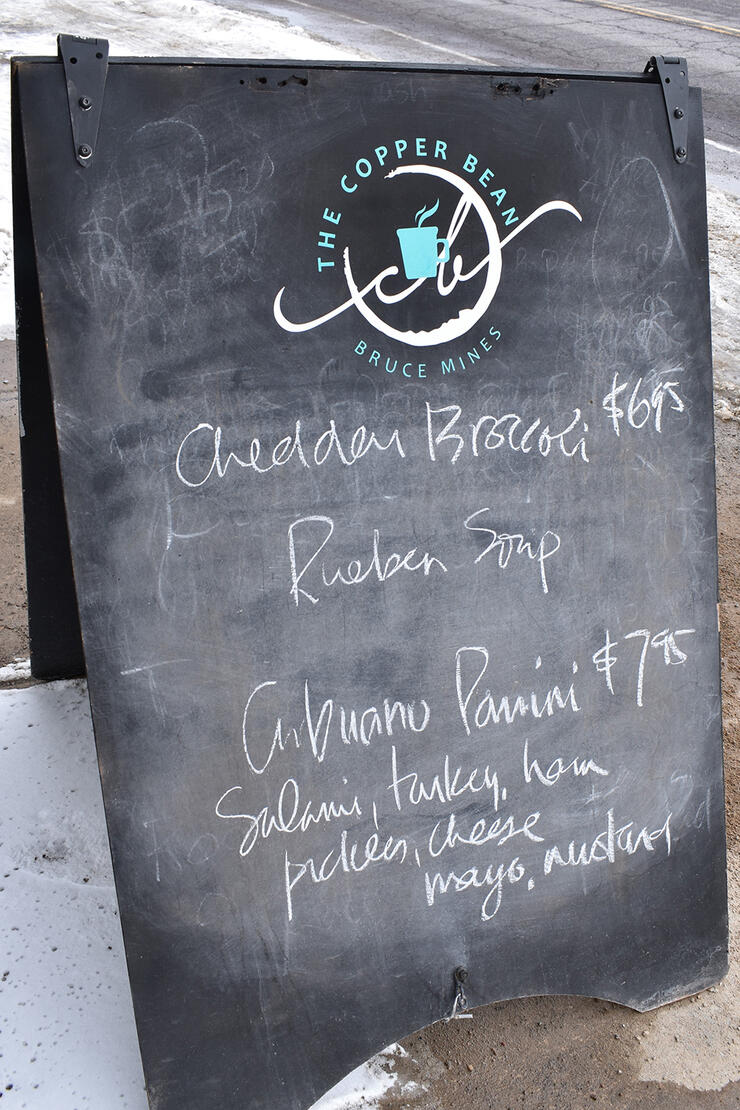 THE COPPER BEAN
cb
BRUCE MINES
Cheddar Broccoli $6.95
Rueben Soup
Cubuano Panini $7.95
Salami, turkey, ham
pickles, cheese
mayo, mustard